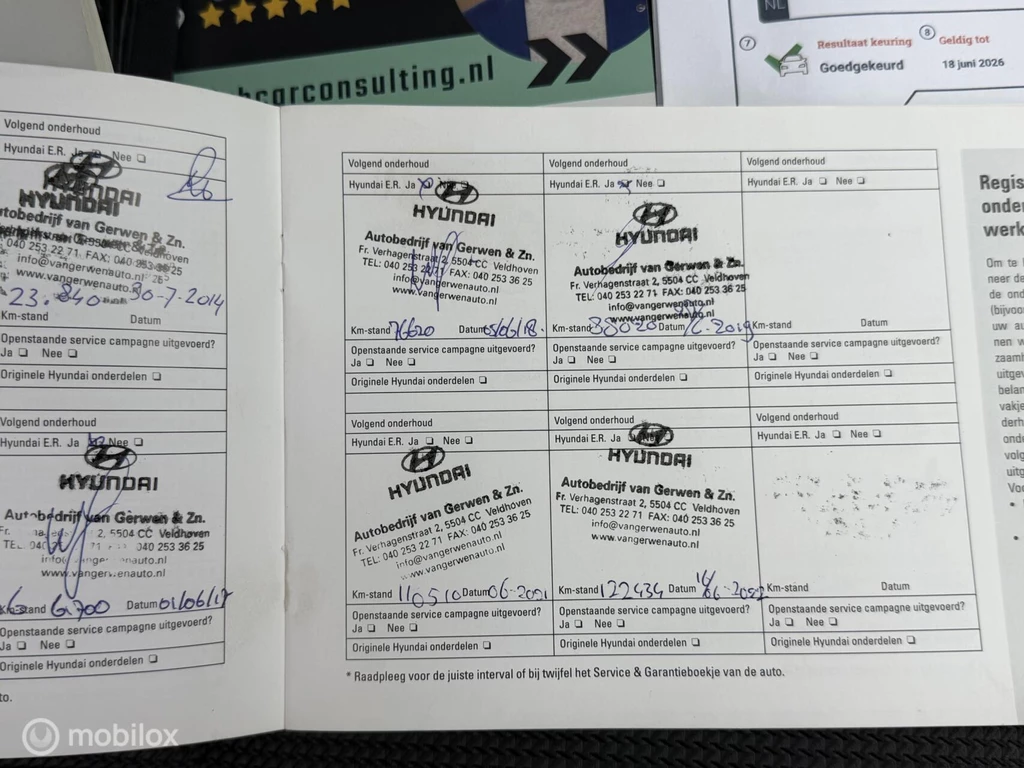 hcarconsulting.nl
NL
7
Resultaat keuring
Goedgekeurd
8
Geldig tot
18 juni 2026
Volgend onderhoud
Hyundai E.R. Ja Nee
HYUNDAI
HYUNDAI
Autobedrijf van Gerwen & Zn.
040 253 22 71 FAX: 040 253 36 25
www.vangerwenauto.nl
23.840 30-7-2014
Km-stand Datum
Openstaande service campagne uitgevoerd?
Ja Nee
Originele Hyundai onderdelen
Volgend onderhoud
Hyundai E.R. Ja Nee
HYUNDAI
Autobedrijf van Gerwen & Zn.
Fr. 2, 5504 CC Veldhoven
040 253 36 25
www.vangerwenauto.nl
Km-stand 61700 Datum 01/06/17
Openstaande service campagne uitgevoerd?
Ja Nee
Originele Hyundai onderdelen
to.
Volgend onderhoud
Hyundai E.R. Ja Nee
HYUNDAI
Autobedrijf van Gerwen & Zn.
Fr. Verhagenstraat 2, 5504 CC Veldhoven
TEL: 040 253 22 71 FAX: 040 253 36 25
info@vangerwenauto.nl
www.vangerwenauto.nl
Km-stand 76620 Datum 05/06/18.
Openstaande service campagne uitgevoerd?
Ja Nee
Originele Hyundai onderdelen
Volgend onderhoud
Hyundai E.R. Ja Nee
HYUNDAI
Autobedrijf van Gerwen & Zn.
Fr. Verhagenstraat 2, 5504 CC Veldhoven
TEL: 040 253 22 71 FAX: 040 253 36 25
info@vangerwenauto.nl
www.vangerwenauto.nl
Km-stand Datum 6-2019
Openstaande service campagne uitgevoerd?
Ja Nee
Originele Hyundai onderdelen
Volgend onderhoud
Hyundai E.R. Ja Nee
Km-stand Datum
Openstaande service campagne uitgevoerd?
Ja Nee
Originele Hyundai onderdelen
Volgend onderhoud
Hyundai E.R. Ja Nee
HYUNDAI
Autobedrijf van Gerwen & Zn.
Fr. Verhagenstraat 2, 5504 CC Veldhoven
TEL: 040 253 22 71 FAX: 040 253 36 25
info@vangerwenauto.nl
www.vangerwenauto.nl
Km-stand 110510 Datum 06-2021
Openstaande service campagne uitgevoerd?
Ja Nee
Originele Hyundai onderdelen
Volgend onderhoud
Hyundai E.R. Ja Nee
HYUNDAI
Autobedrijf van Gerwen & Zn.
Fr. Verhagenstraat 2, 5504 CC Veldhoven
TEL: 040 253 22 71 FAX: 040 253 36 25
info@vangerwenauto.nl
www.vangerwenauto.nl
Km-stand 122434 Datum 16/6-2022
Openstaande service campagne uitgevoerd?
Ja Nee
Originele Hyundai onderdelen
Volgend onderhoud
Hyundai E.R. Ja Nee
Km-stand Datum
Openstaande service campagne uitgevoerd?
Ja Nee
Originele Hyundai onderdelen
* Raadpleeg voor de juiste interval of bij twijfel het Service & Garantieboekje van de auto.
Regis
onder
werk
Om te
neer de
de ond
(bijvoo
uw au
nen w
zaamh
uitgev
belan
vakje
derh
onde
volg
uitg
Vo
mobilox